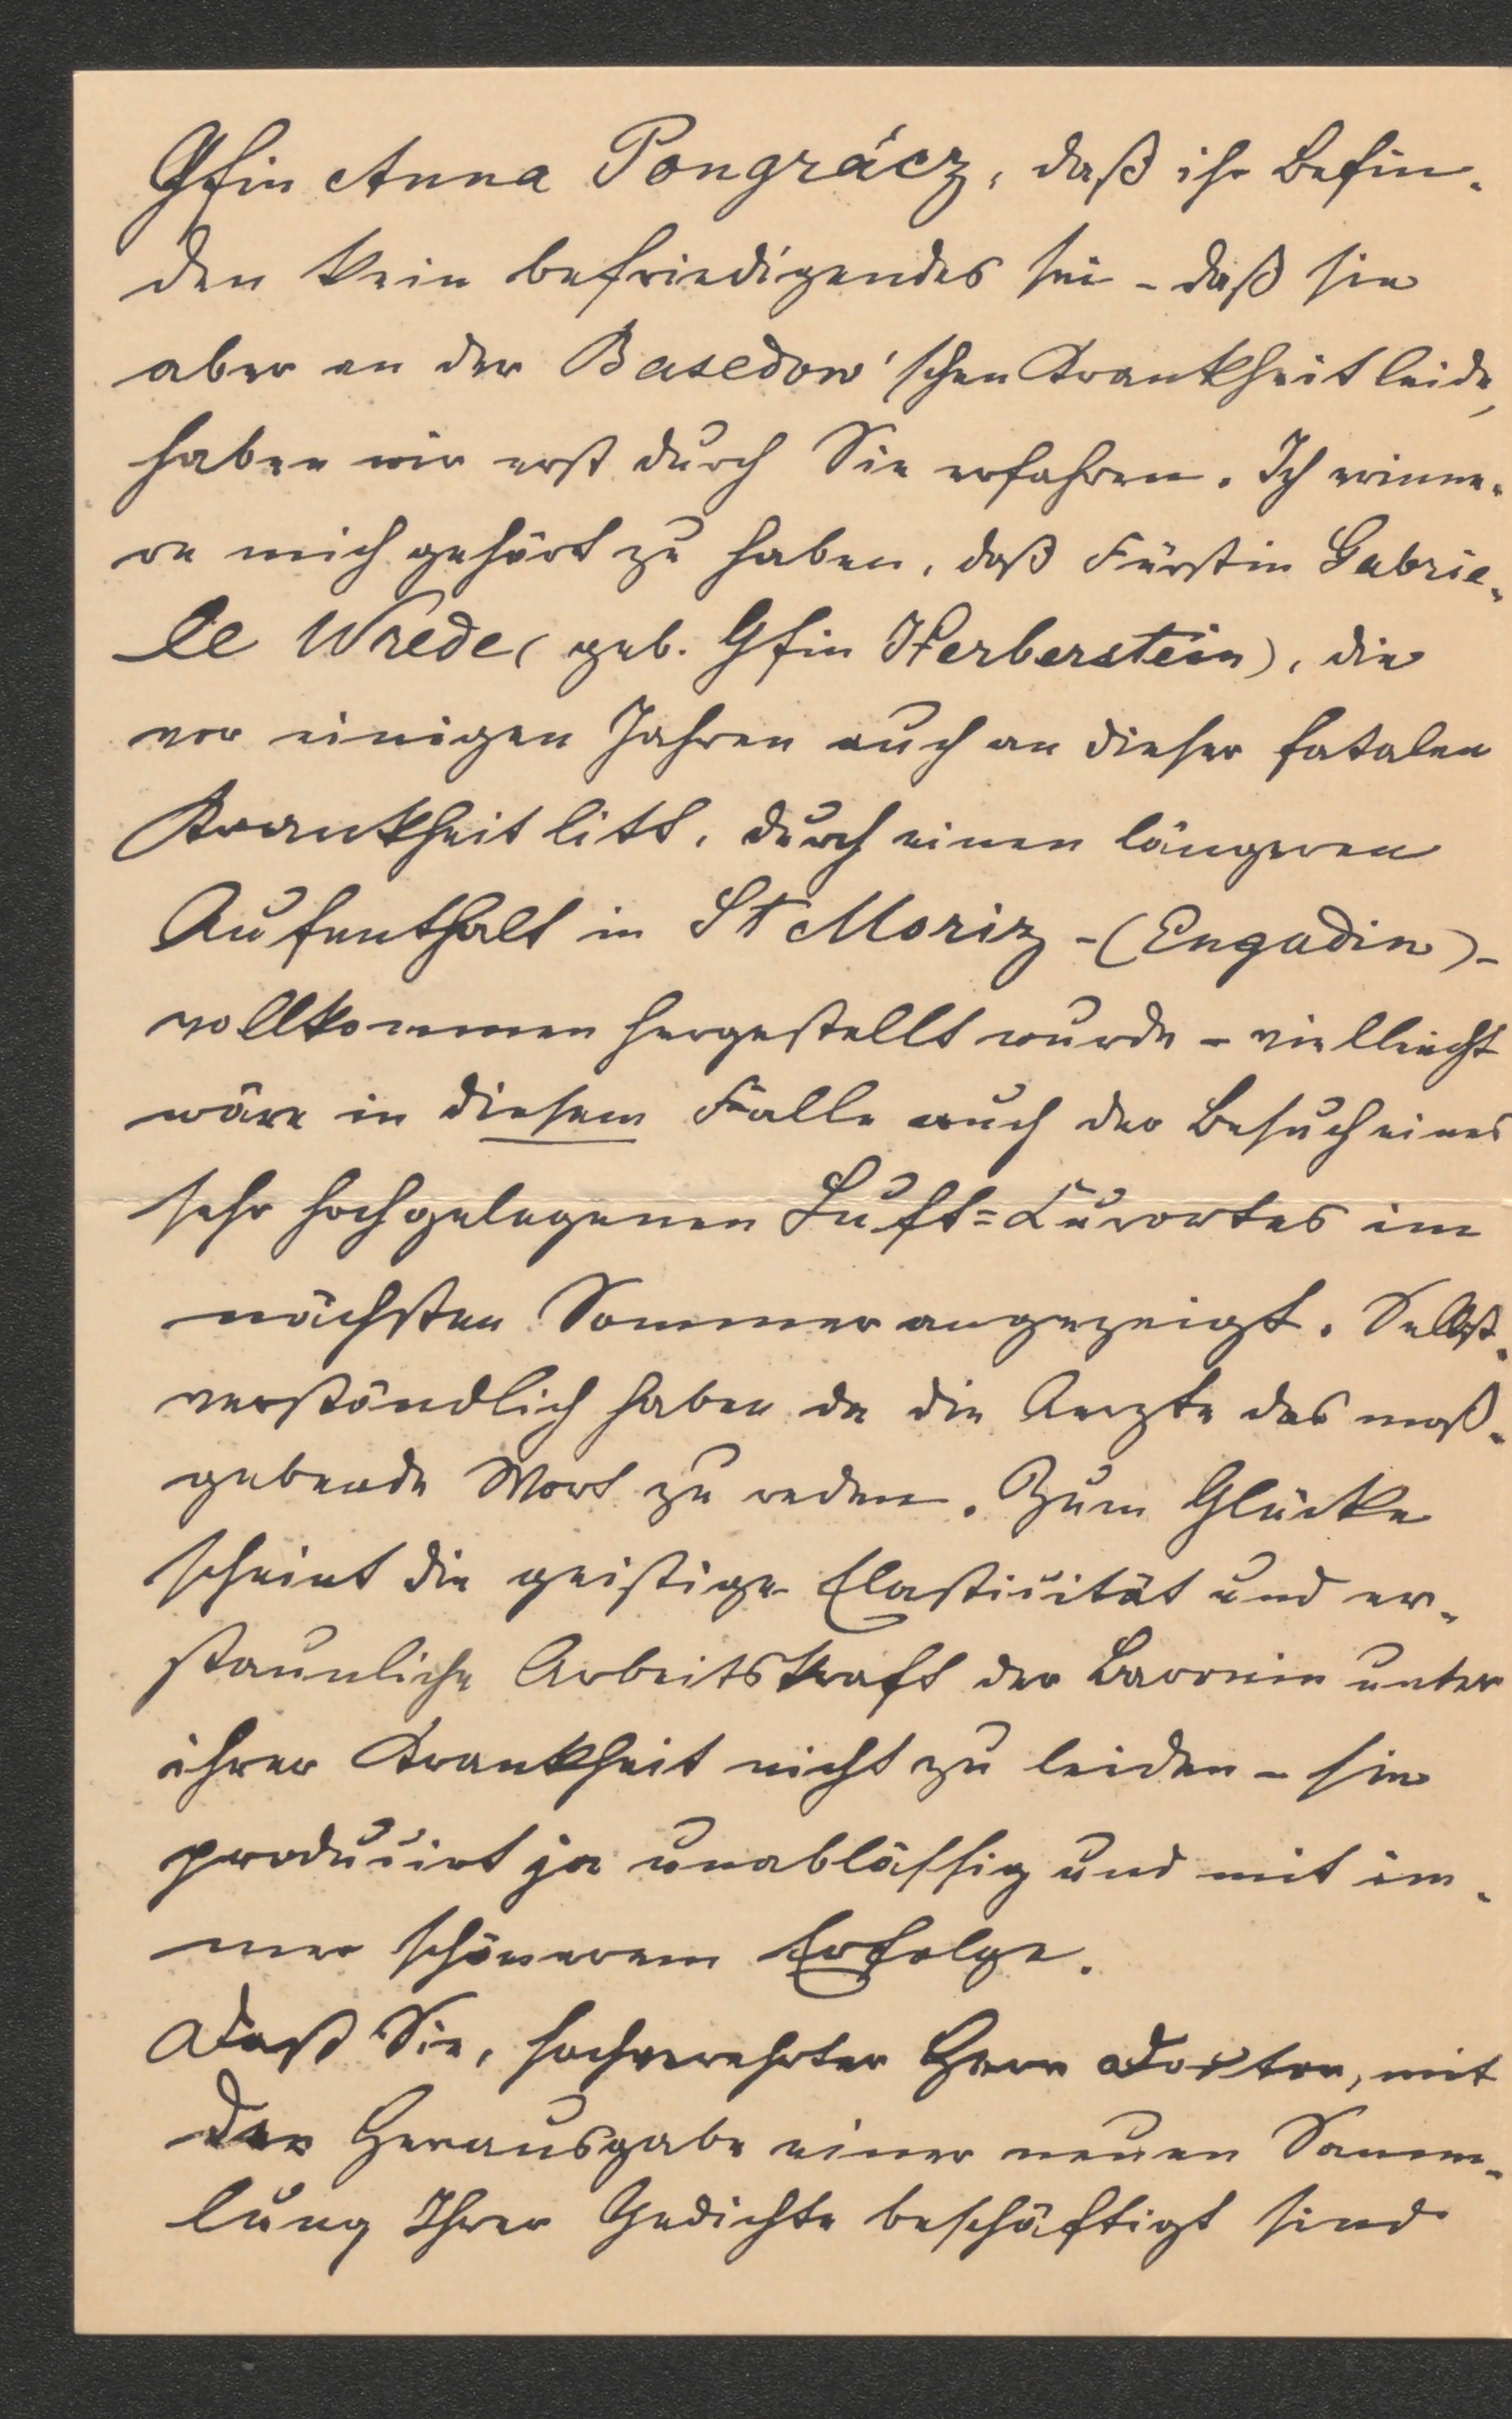 Gfin Anna Pongrácz, daß ihr Befin-
den kein befriedigendes sei - daß sie
aber an der Basedow'schen Krankheit leide,
haben wir erst durch Sie erfahren. Ich erinne-
re mich gehört zu haben, daß Fürstin Gabrie-
le Wrede (geb. Gfin Herberstein), die
vor einigen Jahren auch an dieser fatalen
Krankheit litt, durch einen längeren
Aufenthalt in St Moriz - (Engadin) -
vollkommen hergestellt wurde - vielleicht
wäre in diesem Falle auch der Besuch eines
sehr hochgelegenen Luft=Curortes im
nächsten Sommer angezeigt. Selbst-
verständlich haben da die Aerzte das maß-
gebende Wort zu reden. Zum Glücke
scheint die geistige Elasticität und er-
staunliche Arbeitskraft der Baronin unter
ihrer Krankheit nicht zu leiden - sie
producirt ja unablässig und mit im-
mer schönerem Erfolge.
Daß Sie, hochverehrter Herr Doctor, mit
der Herausgabe einer neuen Samm-
lung Ihrer Gedichte beschäftigt sind